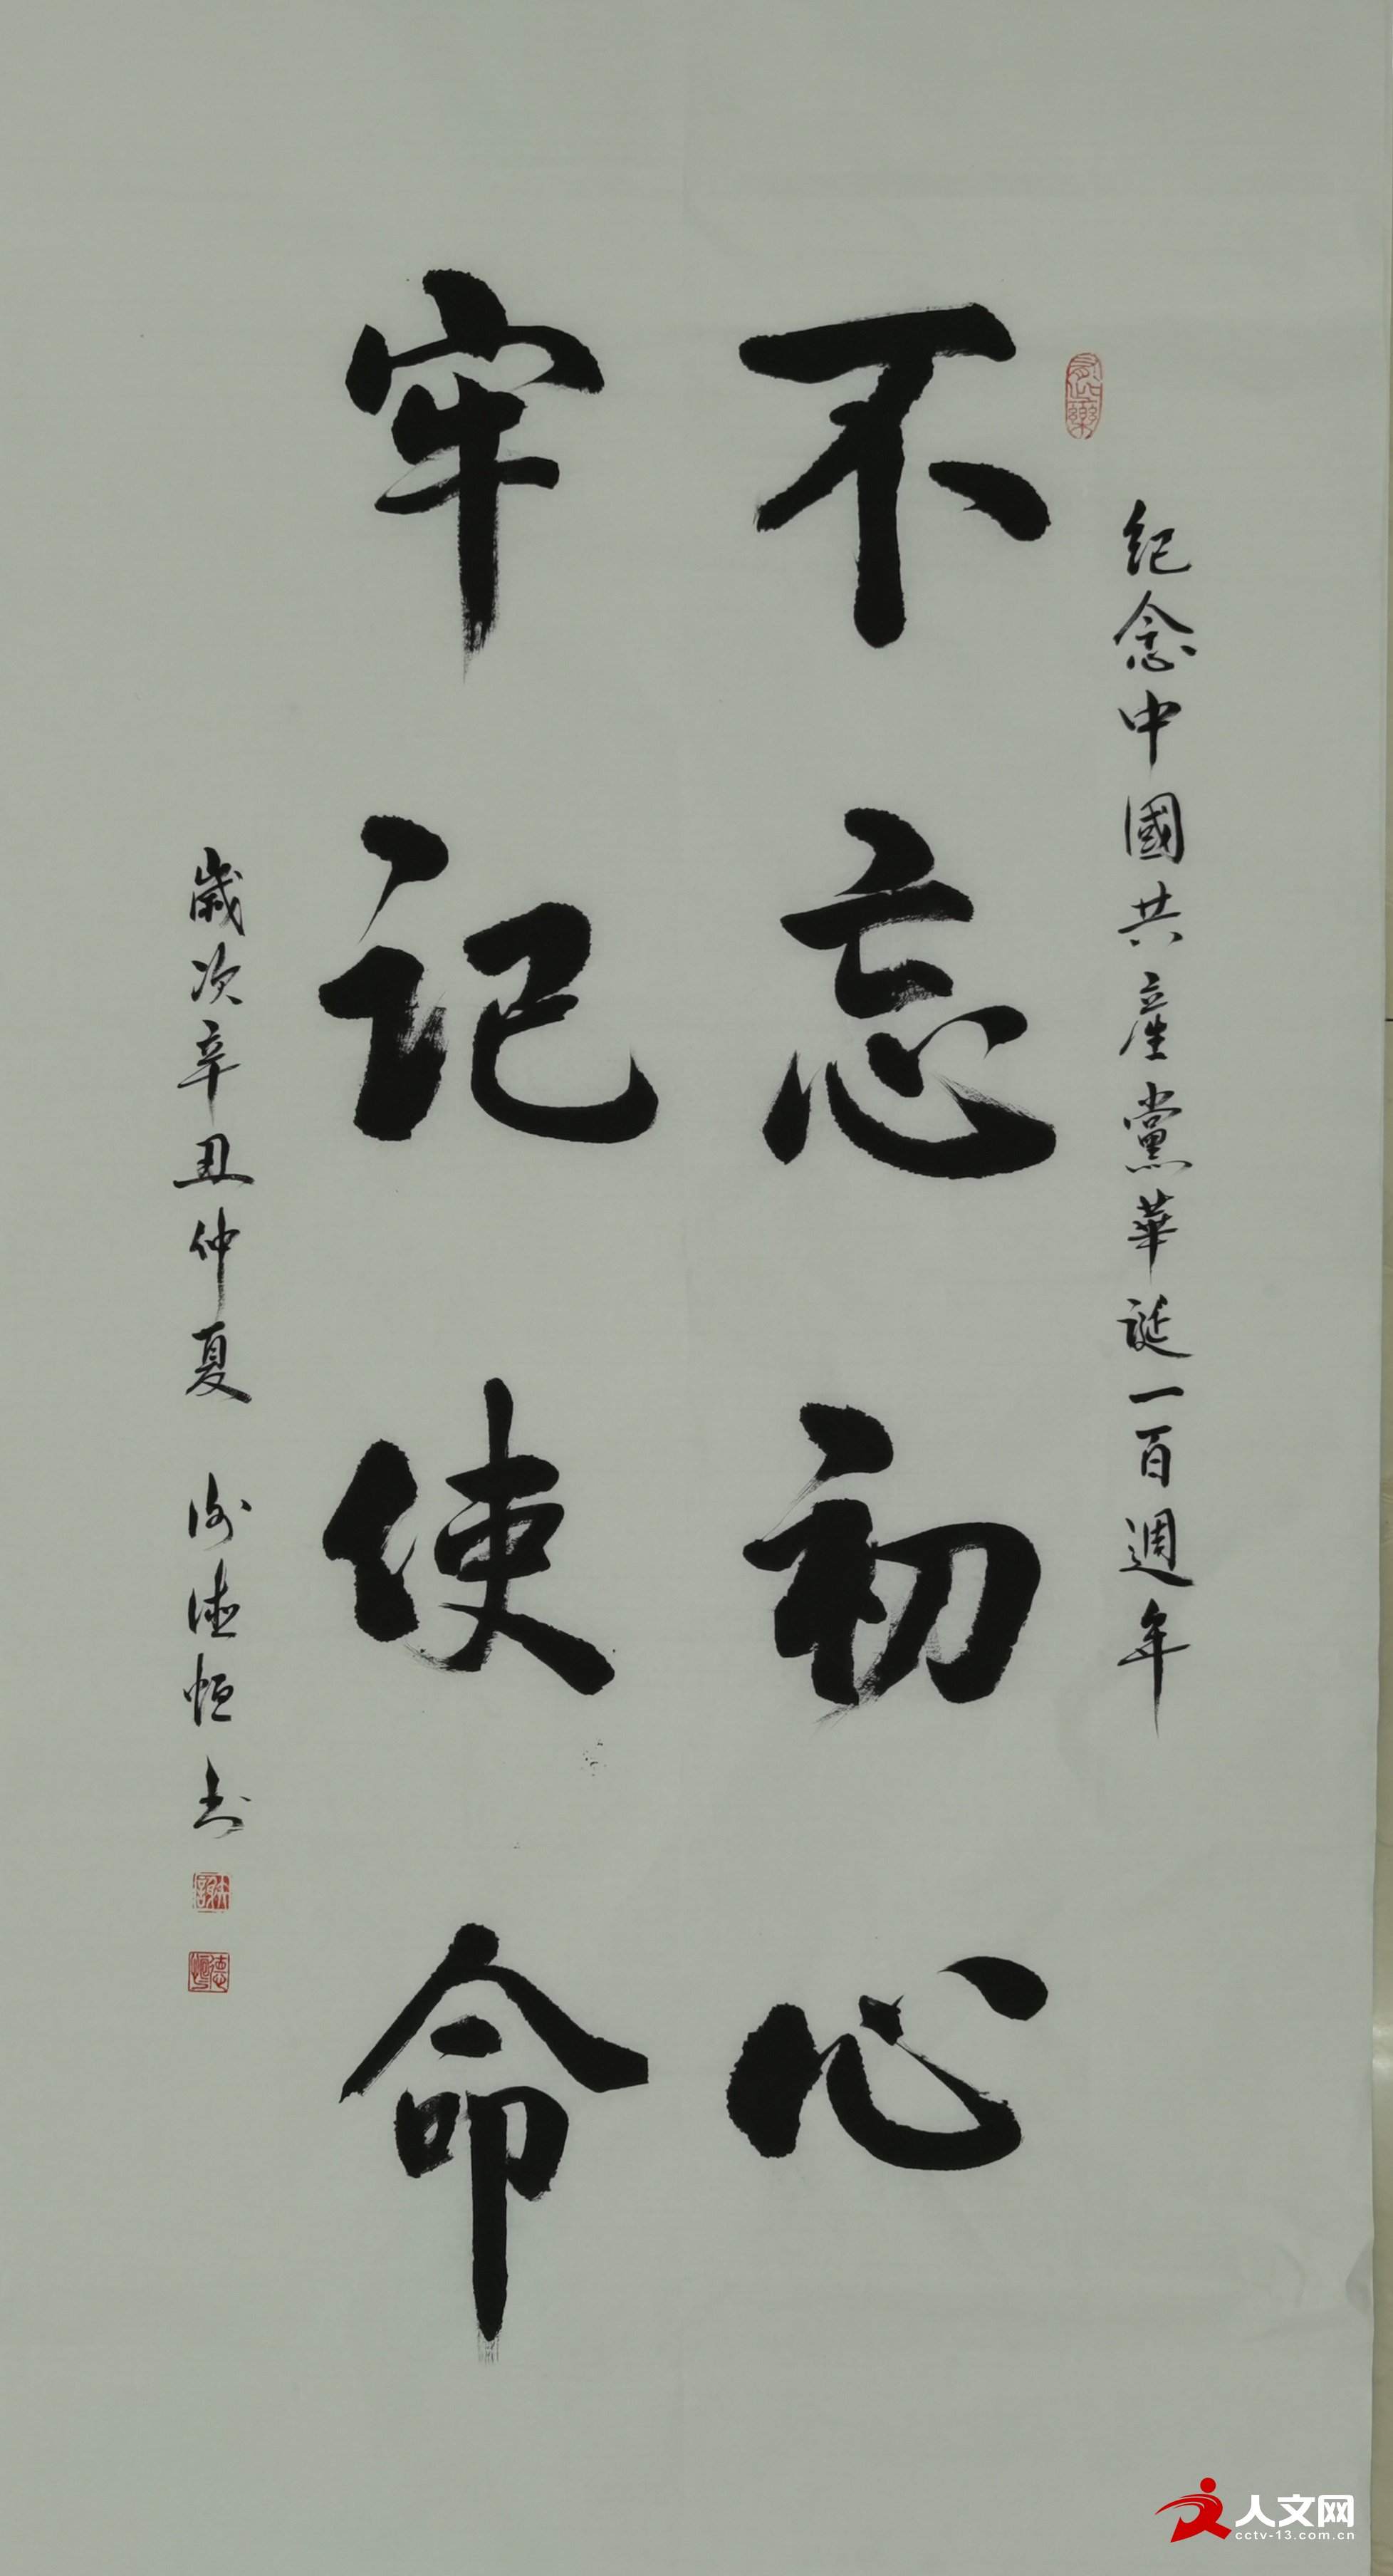 紀念中國共産黨華誕一百週年
不忘初心
牢记使命
歲次辛丑仲夏 谢德恒书
人文网
cctv-13.com.cn